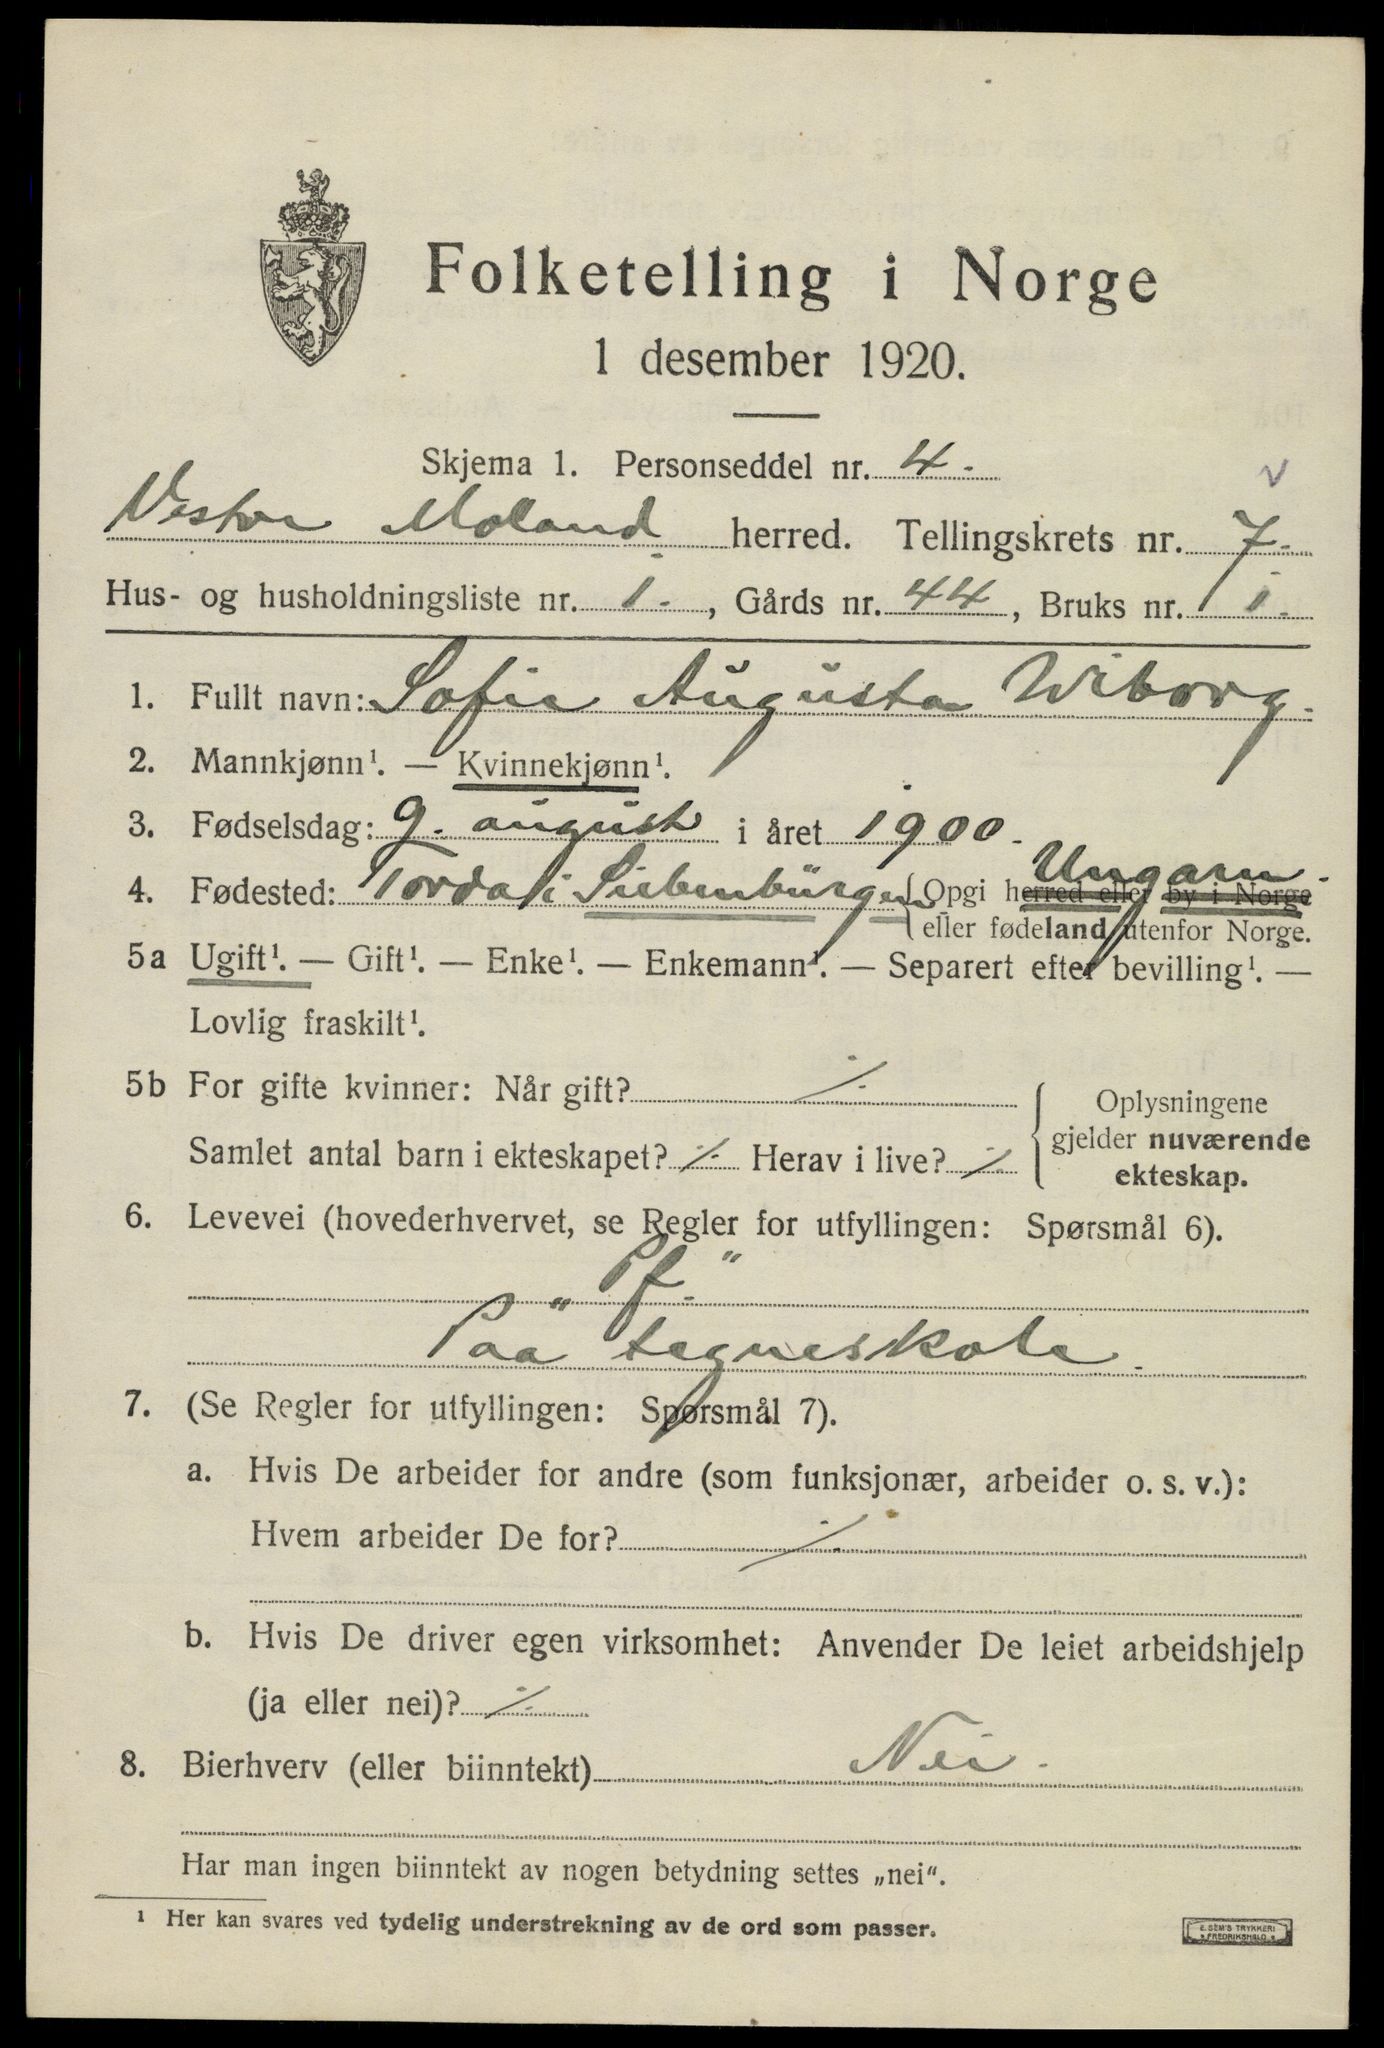 Folketelling i Norge
1 desember 1920.
Skjema 1. Personseddel nr. 4.
v
Vestre Moland herred. Tellingskrets nr. 7.
Hus- og husholdningsliste nr. 1., Gårds nr. 44, Bruks nr. 1.
1. Fullt navn: Sofie Augusta Wiborg.
2. Mannkjønn¹. — Kvinnekjønn¹.
3. Fødselsdag: 9. august i året 1900.
Ungarn.
4. Fødested: Torda i Siebenbürgen { Opgi herred eller by i Norge
eller fødeland utenfor Norge.
5a Ugift¹. — Gift¹. — Enke¹. — Enkemann¹. — Separert efter bevilling¹. —
Lovlig fraskilt¹.
5b For gifte kvinner: Når gift? ⁒
Samlet antal barn i ekteskapet? ⁒ Herav i live? ⁒
{ Oplysningene
gjelder nuværende
ekteskap.
6. Levevei (hovederhvervet, se Regler for utfyllingen: Spørsmål 6).
„Pf."
Paa tegneskole.
7. (Se Regler for utfyllingen: Spørsmål 7).
a. Hvis De arbeider for andre (som funksjonær, arbeider o. s. v.):
Hvem arbeider De for? ⁒
b. Hvis De driver egen virksomhet: Anvender De leiet arbeidshjelp
(ja eller nei)? ⁒
8. Bierhverv (eller biinntekt) Nei.
Har man ingen biinntekt av nogen betydning settes „nei".
¹ Her kan svares ved tydelig understrekning av de ord som passer.
E. SEM'S TRYKKERI
FREDRIKSHALD